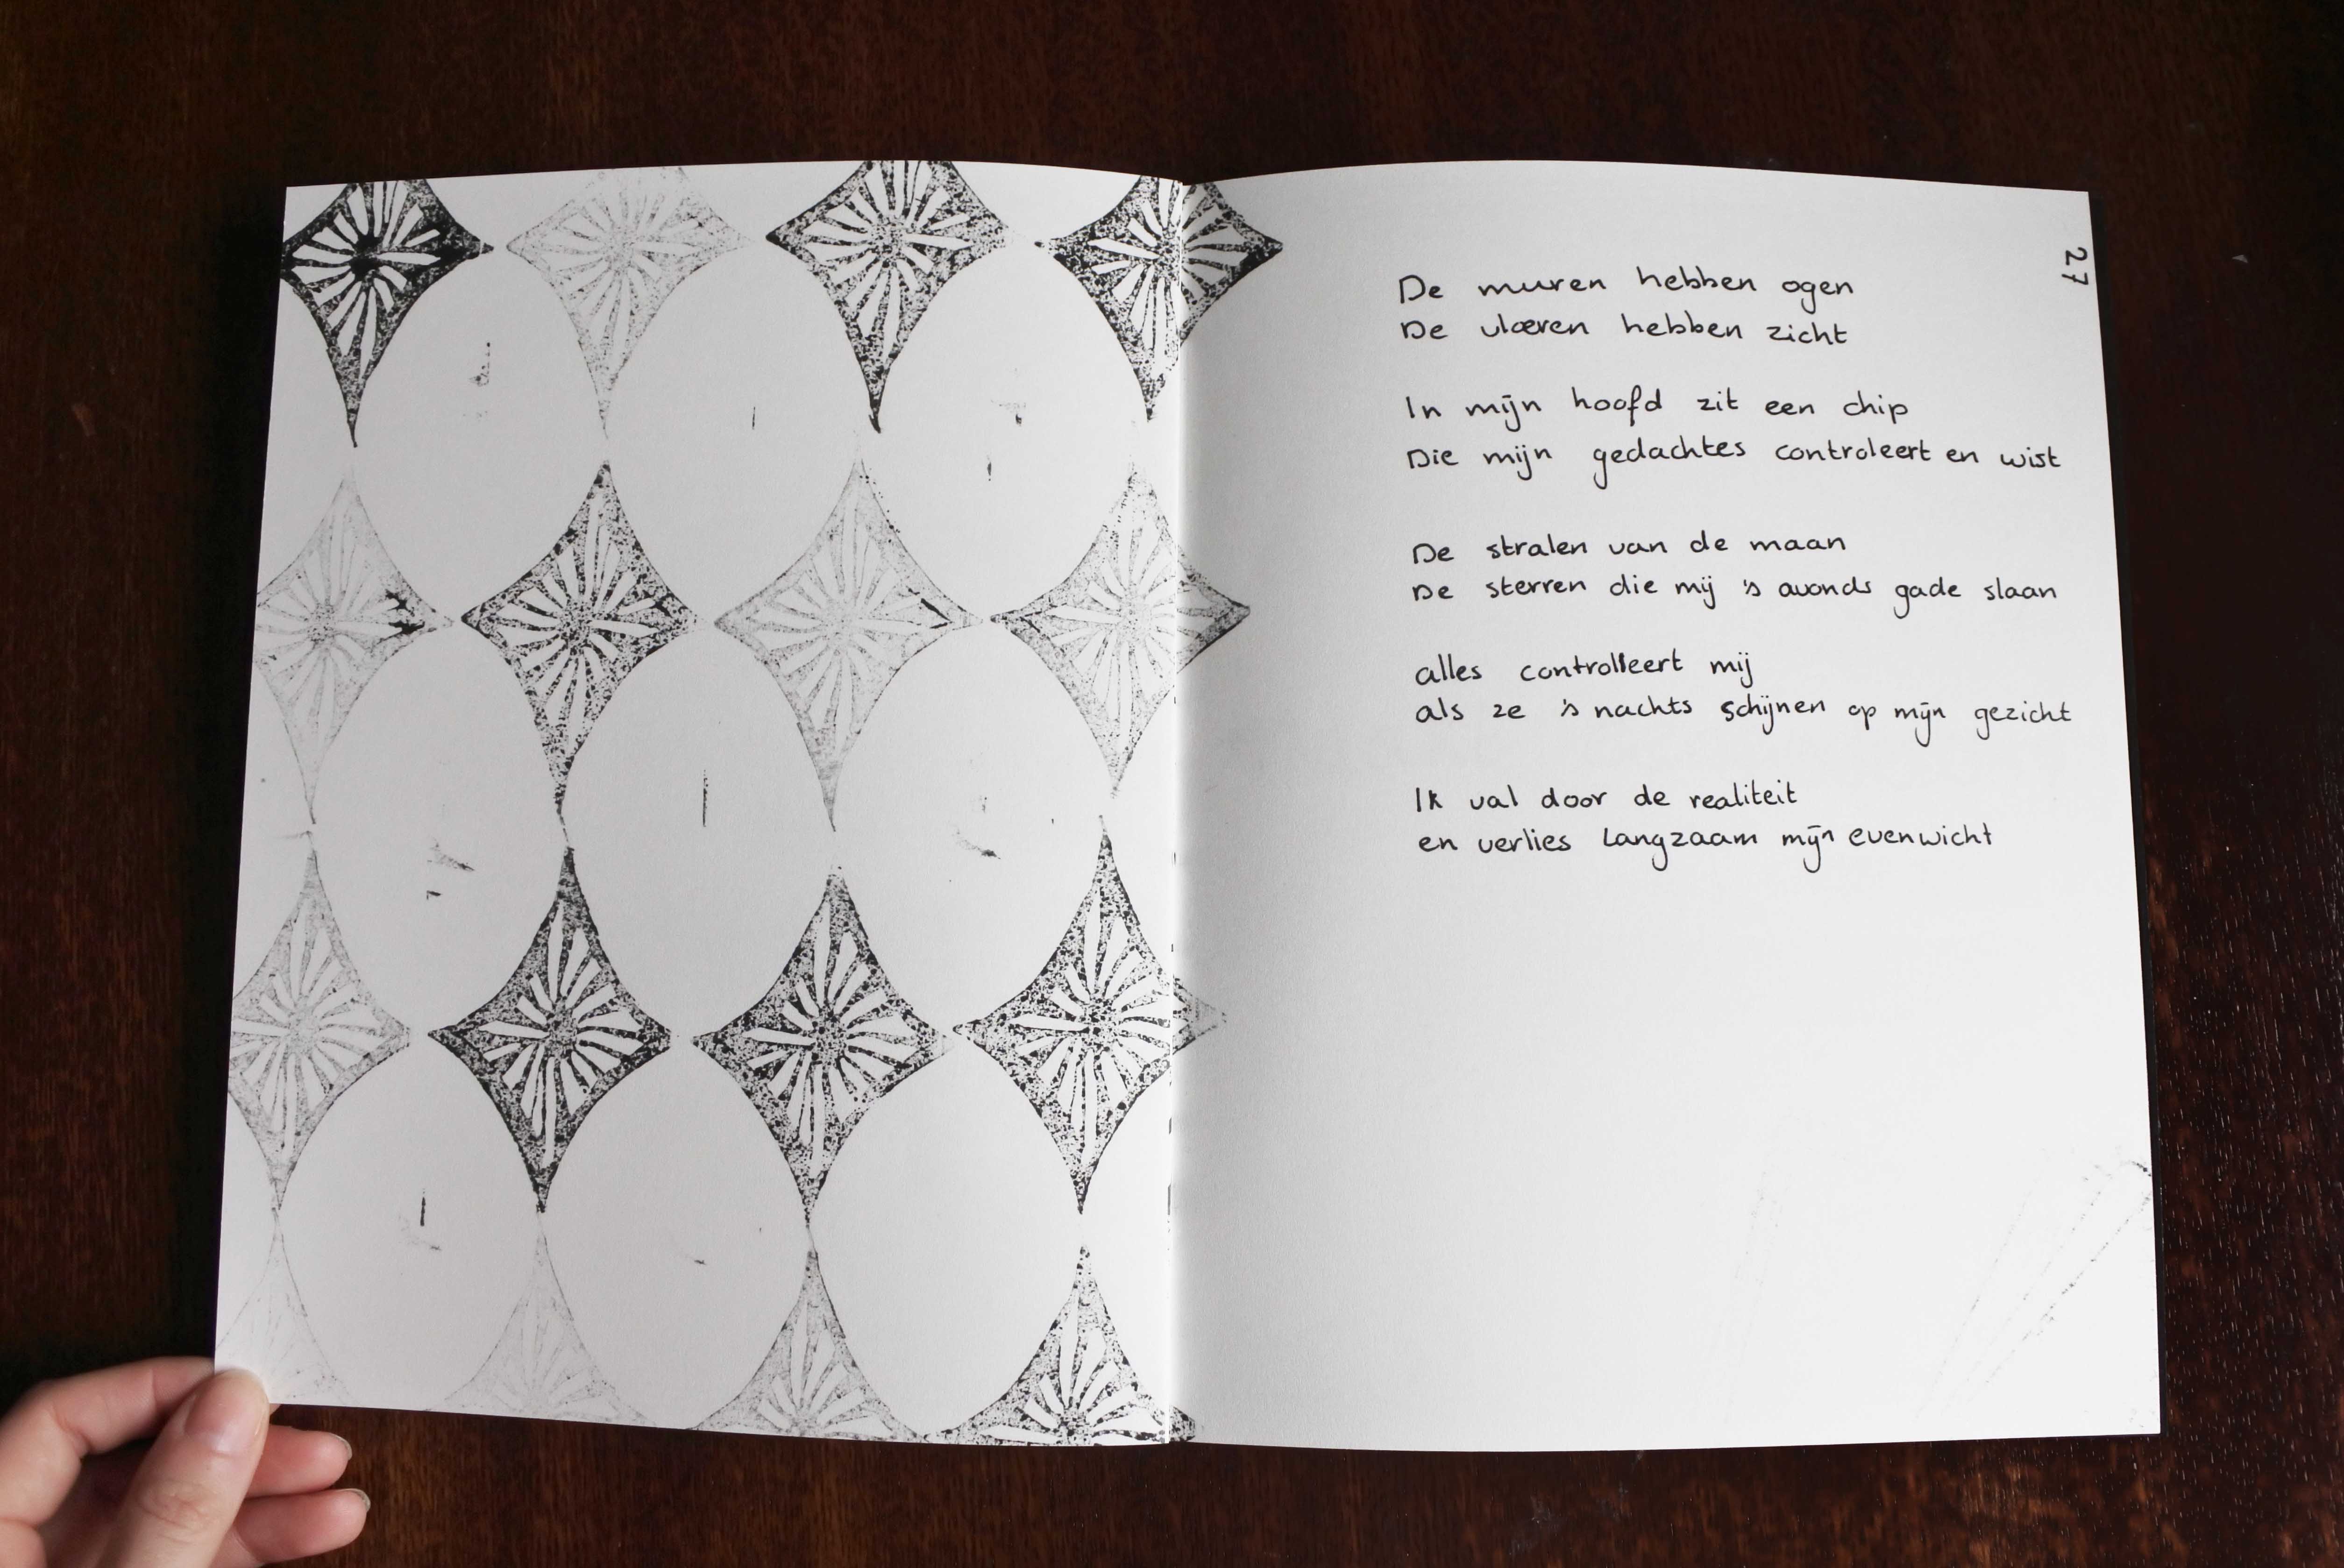 27
De muren hebben ogen
De vloeren hebben zicht
In mijn hoofd zit een chip
Die mijn gedachtes controleert en wist
De stralen van de maan
De sterren die mij 's avonds gade slaan
alles controlleert mij
als ze 's nachts schijnen op mijn gezicht
Ik val door de realiteit
en verlies langzaam mijn evenwicht